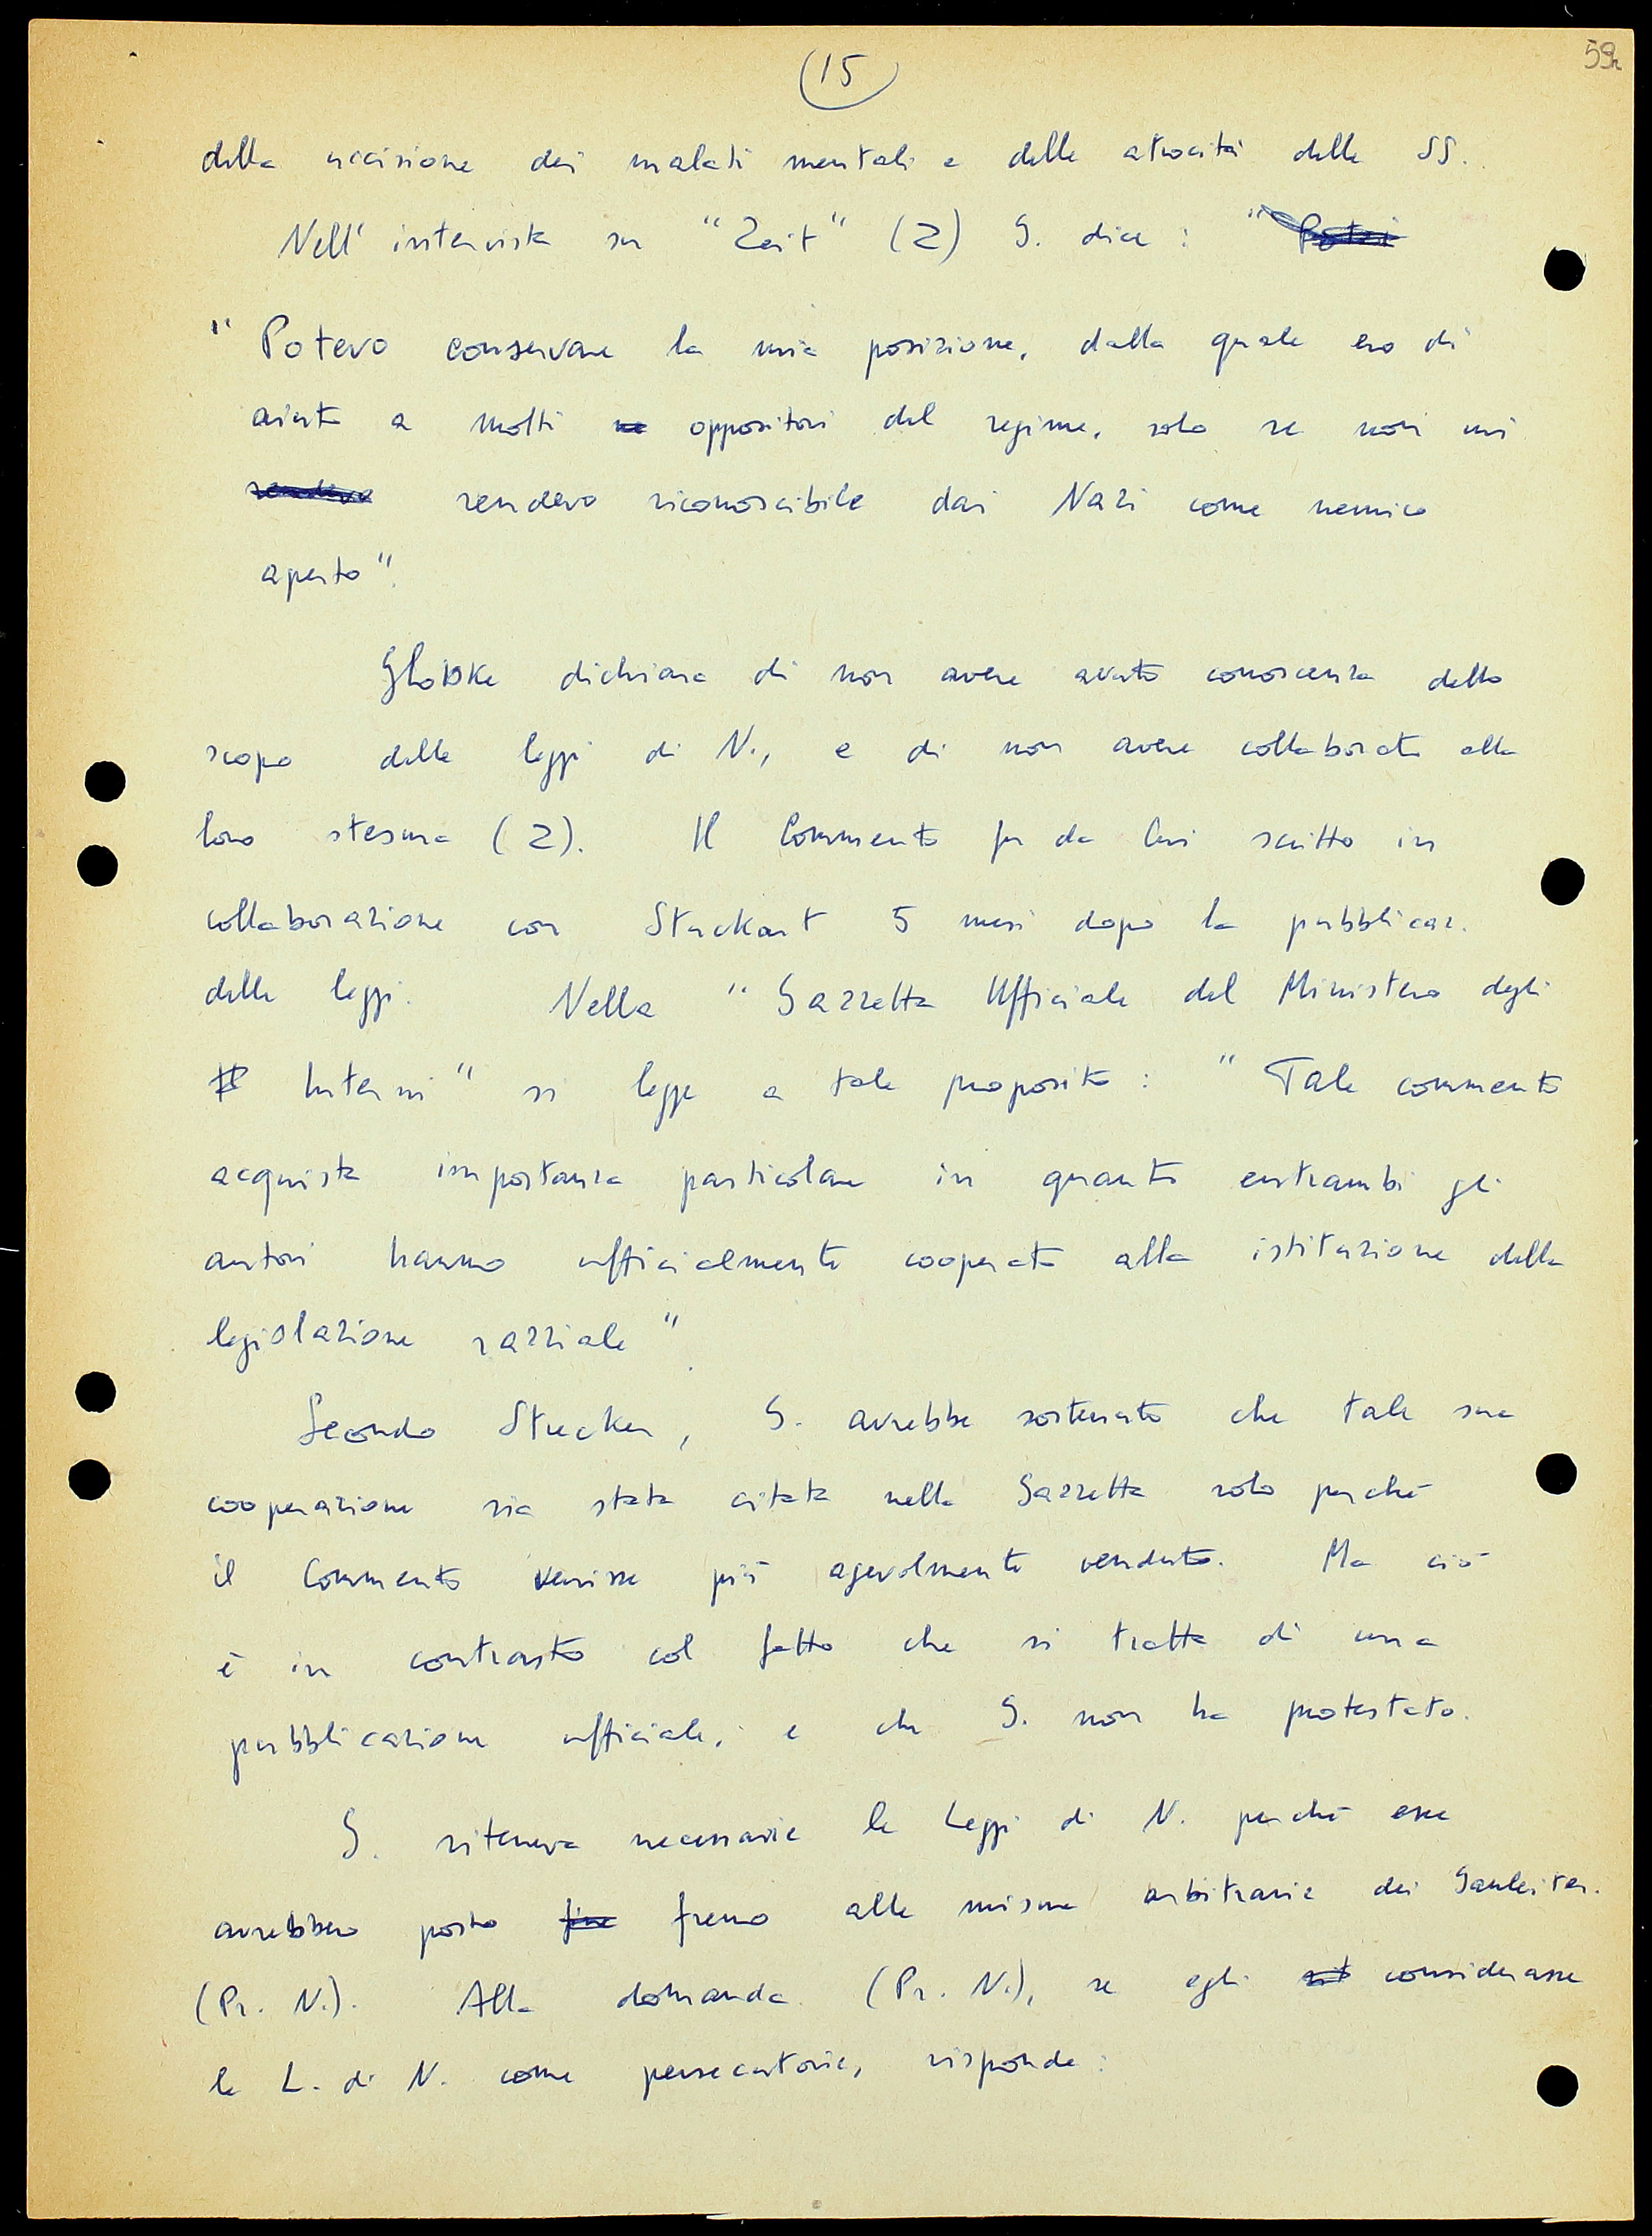 15
59
della uccisione dei malati mentali e delle atrocità delle SS.
Nell' intervista su "Zeit" (Z) G. dice : "
" Potevo conservare la mia posizione, dalla quale ero di
aiuto a molti ne oppositori del regime, solo se non mi
rendevo rendevo riconoscibile dai Nazi come nemico
aperto".
Globke dichiara di non avere avuto conoscenza dello
scopo delle leggi di N., e di non avere collaborato alla
loro stesura (Z). Il Commento fu da lui scritto in
collaborazione con Stuckart 5 mesi dopo la pubblicaz.
delle leggi. Nella "Gazzetta Ufficiale del Ministero degli
Interni" si legge a tale proposito : "Tale commento
acquista importanza particolare in quanto entrambi gli
autori hanno ufficialmente cooperato alla istituzione della
legislazione razziale".
Secondo Strecker, G. avrebbe sostenuto che tale sua
cooperazione sia stata citata nella Gazzetta solo perché
il Commento venisse più agevolmente venduto. Ma ciò
è in contrasto col fatto che si tratta di una
pubblicazione ufficiale, e che G. non ha protestato.
G. riteneva necessarie le Leggi di N. perché esse
avrebbero posto fine freno alle misure arbitrarie dei Gauleiter.
(Pr. N.). Alla domanda (Pr. N.), se egli considerasse
le L. di N. come persecutorie, risponde :